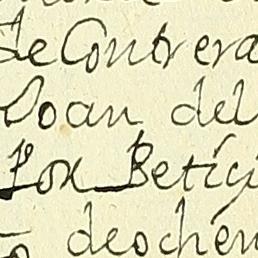 de Contrera
Joan del
Por Petici
deochen